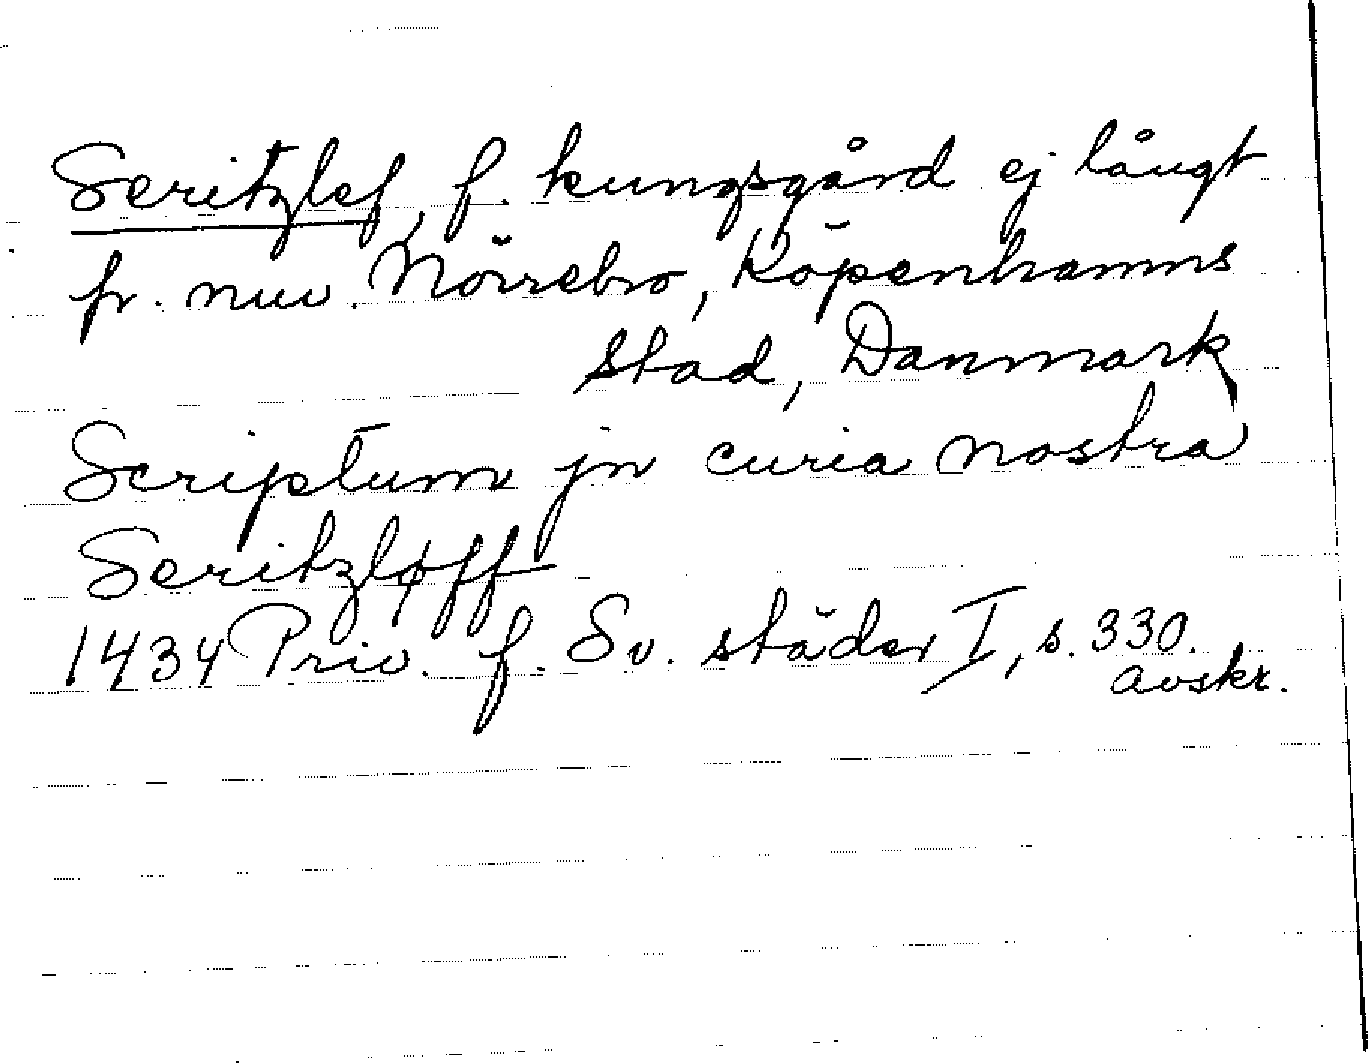 Seritzlef, f. kungsgård ej långt
fr. nuv. Nörrebro, Köpenhamns
stad, Danmark
Scriptum jn curia nostra
Seritzløff
1434 Priv. f. Sv. städer I, s. 330.
avskr.